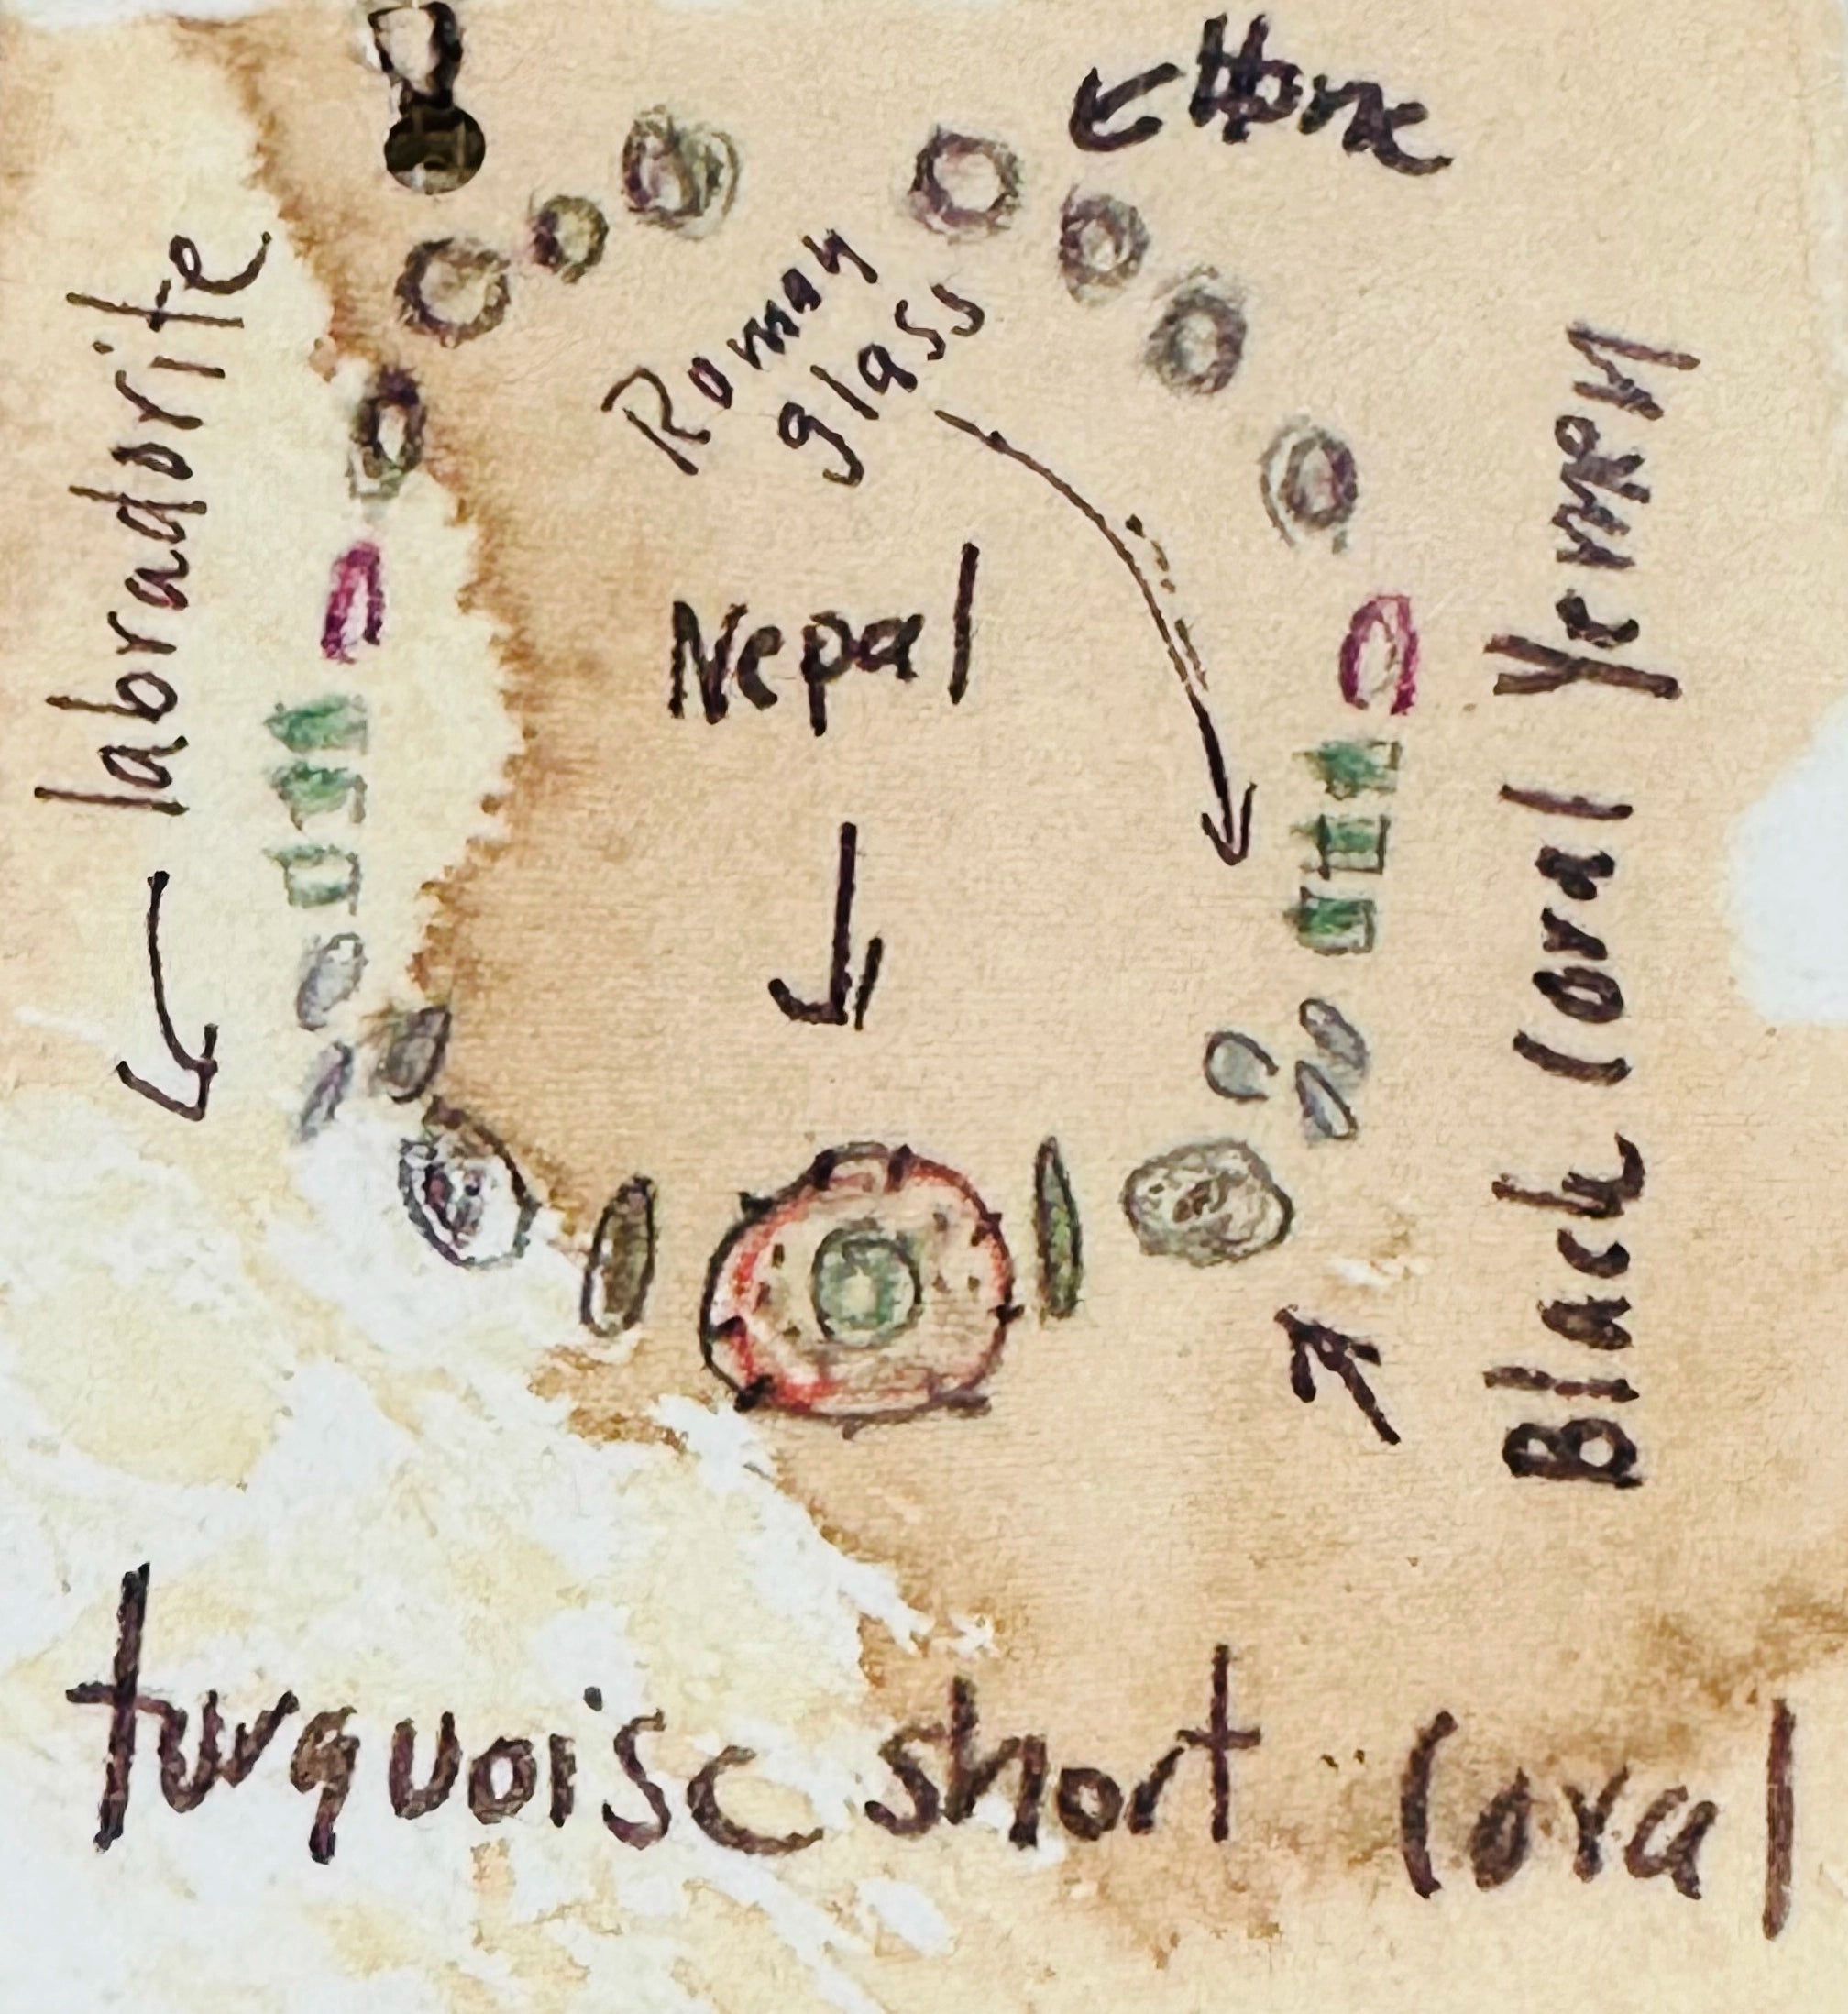 Roman
glass
Nepal
labradorite
Black Coral Yemen
turquoise short Coral